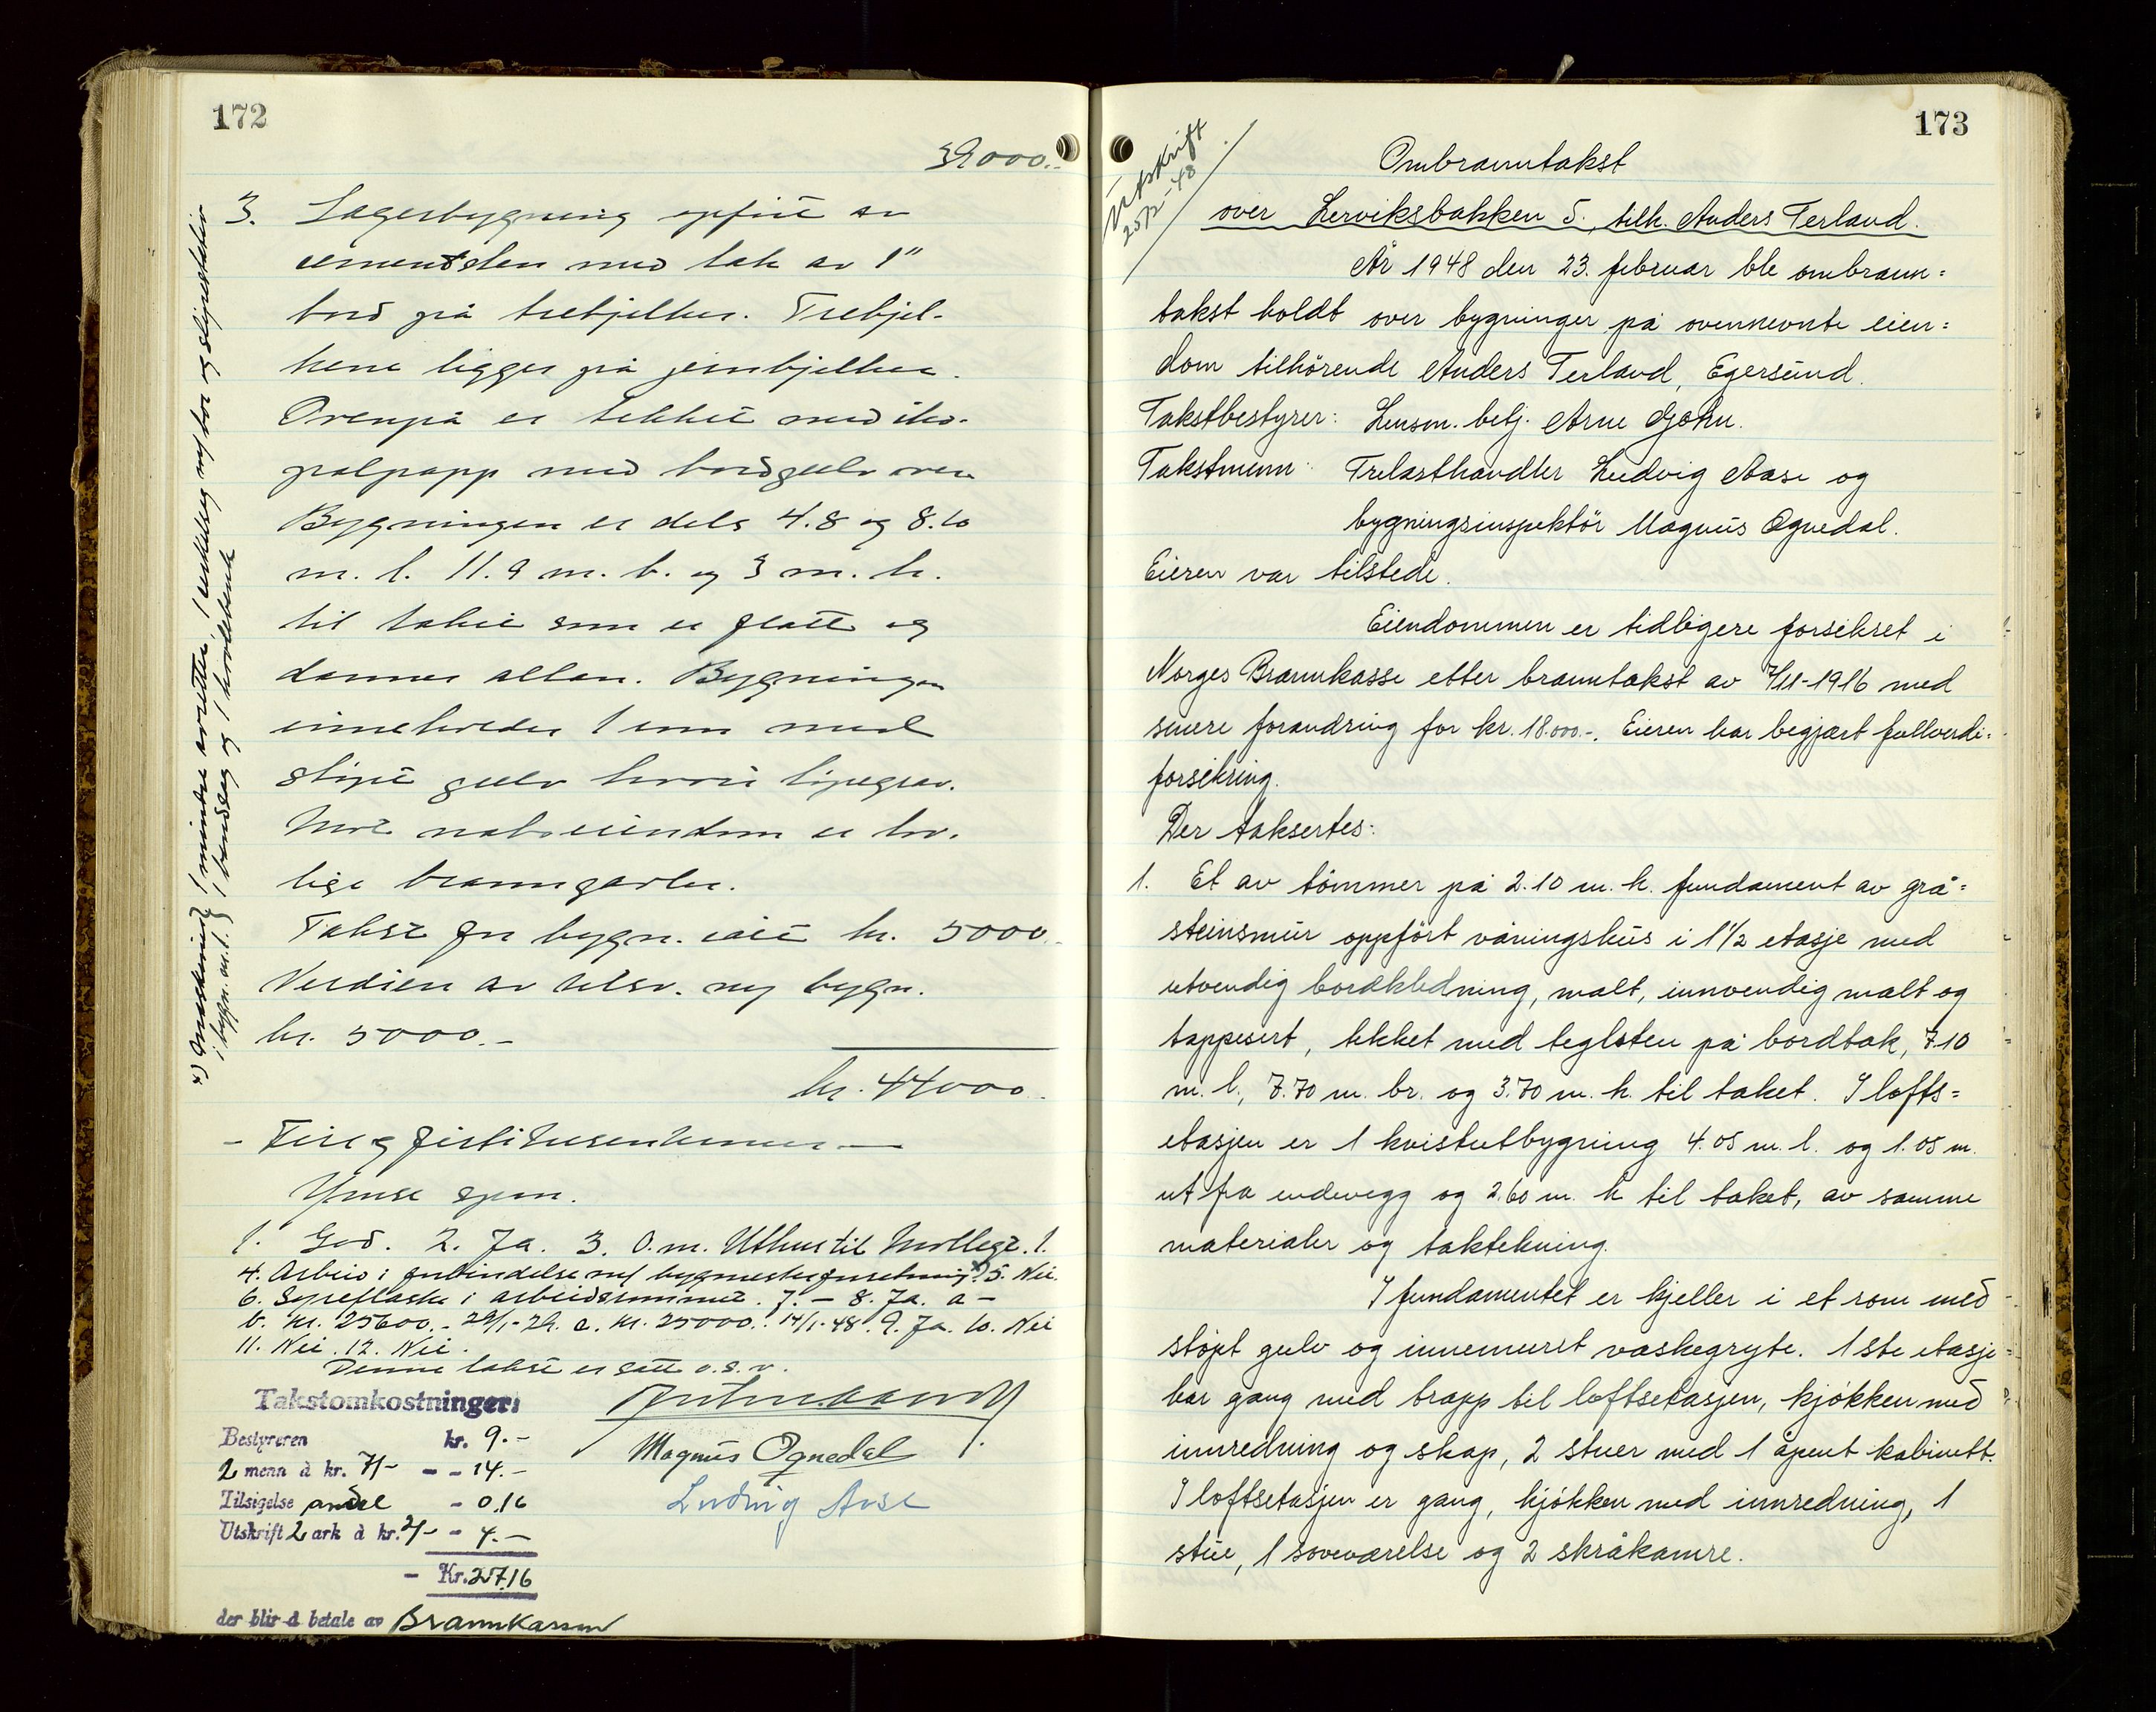 172
39000.-
3. Lagerbygning opført av
cementsten med tak av 1"
bord på trebjelker. Trebjel-
kene ligger på jernbjelker.
Ovenpå er tekket med iko-
palpapp med bordgulv over
Bygningen er dels 4.8 og 8.10
m. l. 11.9 m. b. og 3 m. h.
til taket som er flatt og
danner altan. Bygningen
inneholder 1 rum med
støpt gulv hvori
Mot naboeiendom er lov.
lige branngavler.
Takst for bygn. i alt kr. 5000.-
Verdien av tilsv. ny bygn.
kr. 5000.-
kr. 44000.-
Ymse spm.
1. God. 2. Ja. 3. O.m. Uthus til
4. Arbeid i forbindelse m/ x) 5. Nei.
6. Syreflaske i arbeidsrummet. 7. - 8. Ja. a -
b. kr. 25600.- 29/1-29. c. kr. 25000.- 14/1-48. 9. Ja. 10. Nei
11. Nei. 12. Nei.
Denne takst er satt o.s.v.
Takstomkostninger:
Bestyreren kr. 9.-
2 menn à kr. 7/- - - 14.-
Tilsigelse andel - 0.16
Utskrift 2 ark à kr. 2/- - 4.-
- Kr. 27.16
der blir å betale av Brannkassen
Magnus Ognedal
Ludvig Aase
x) Maskiner 1 mindre 1 bor og slipestativ
i bygn. m.l. 1 båndsag og 1 høvelbenk
173
Utskrift
25/2-48
Ombranntakst
over Lerviksbakken 5, tilh. Anders Terland.
År 1948 den 23. februar ble ombrann=
takst holdt over bygninger på ovennevnte eien=
dom tilhörende Anders Terland, Egersund.
Takstbestyrer: Lensm. betj. Arne Gjøhn.
Takstmenn: Trelasthandler Ludvig Aase og
bygningsinspektör Magnus Ognedal.
Eieren var tilstede.
Eiendommen er tidligere forsikret i
Norges Brannkasse etter branntakst av 7/11-1916 med
senere forandring for kr. 18.000.-. Eieren har begjært fullverdi=
forsikring.
Der taksertes:
1. Et av tömmer på 2.10 m. h. fundament av grå=
steinsmur oppfört våningshus i 1 1/2 etasje med
utvendig bordkledning, malt, innvendig malt og
tappesert, tekket med teglsten på bordtak, 7.10
m. l., 7.70 m. br. og 3.70 m. h. til taket. I lofts=
etasjen er 1 kvistutbygning 4.05 m. l. og 1.05 m.
ut fra endevegg og 2.60 m. h til taket, av samme
materialer og taktekning.
I fundamentet er kjeller i et rom med
stöpt gulv og innemuret vaskegryte. 1ste etasje
har gang med trapp til loftsetasjen, kjökken med
innredning og skap, 2 stuer med 1 åpent kabinett.
I loftsetasjen er gang, kjökken med innredning, 1
stue, 1 soveværelse og 2 skråkamre.